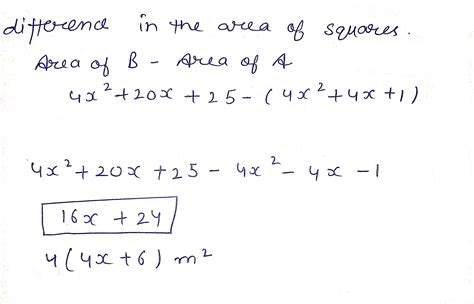 difference in the area of squares.
Area of B - Area of A
4x² + 20x + 25 - (4x² + 4x + 1)
4x² + 20x + 25 - 4x² - 4x - 1
16x + 24
4(4x + 6) m²